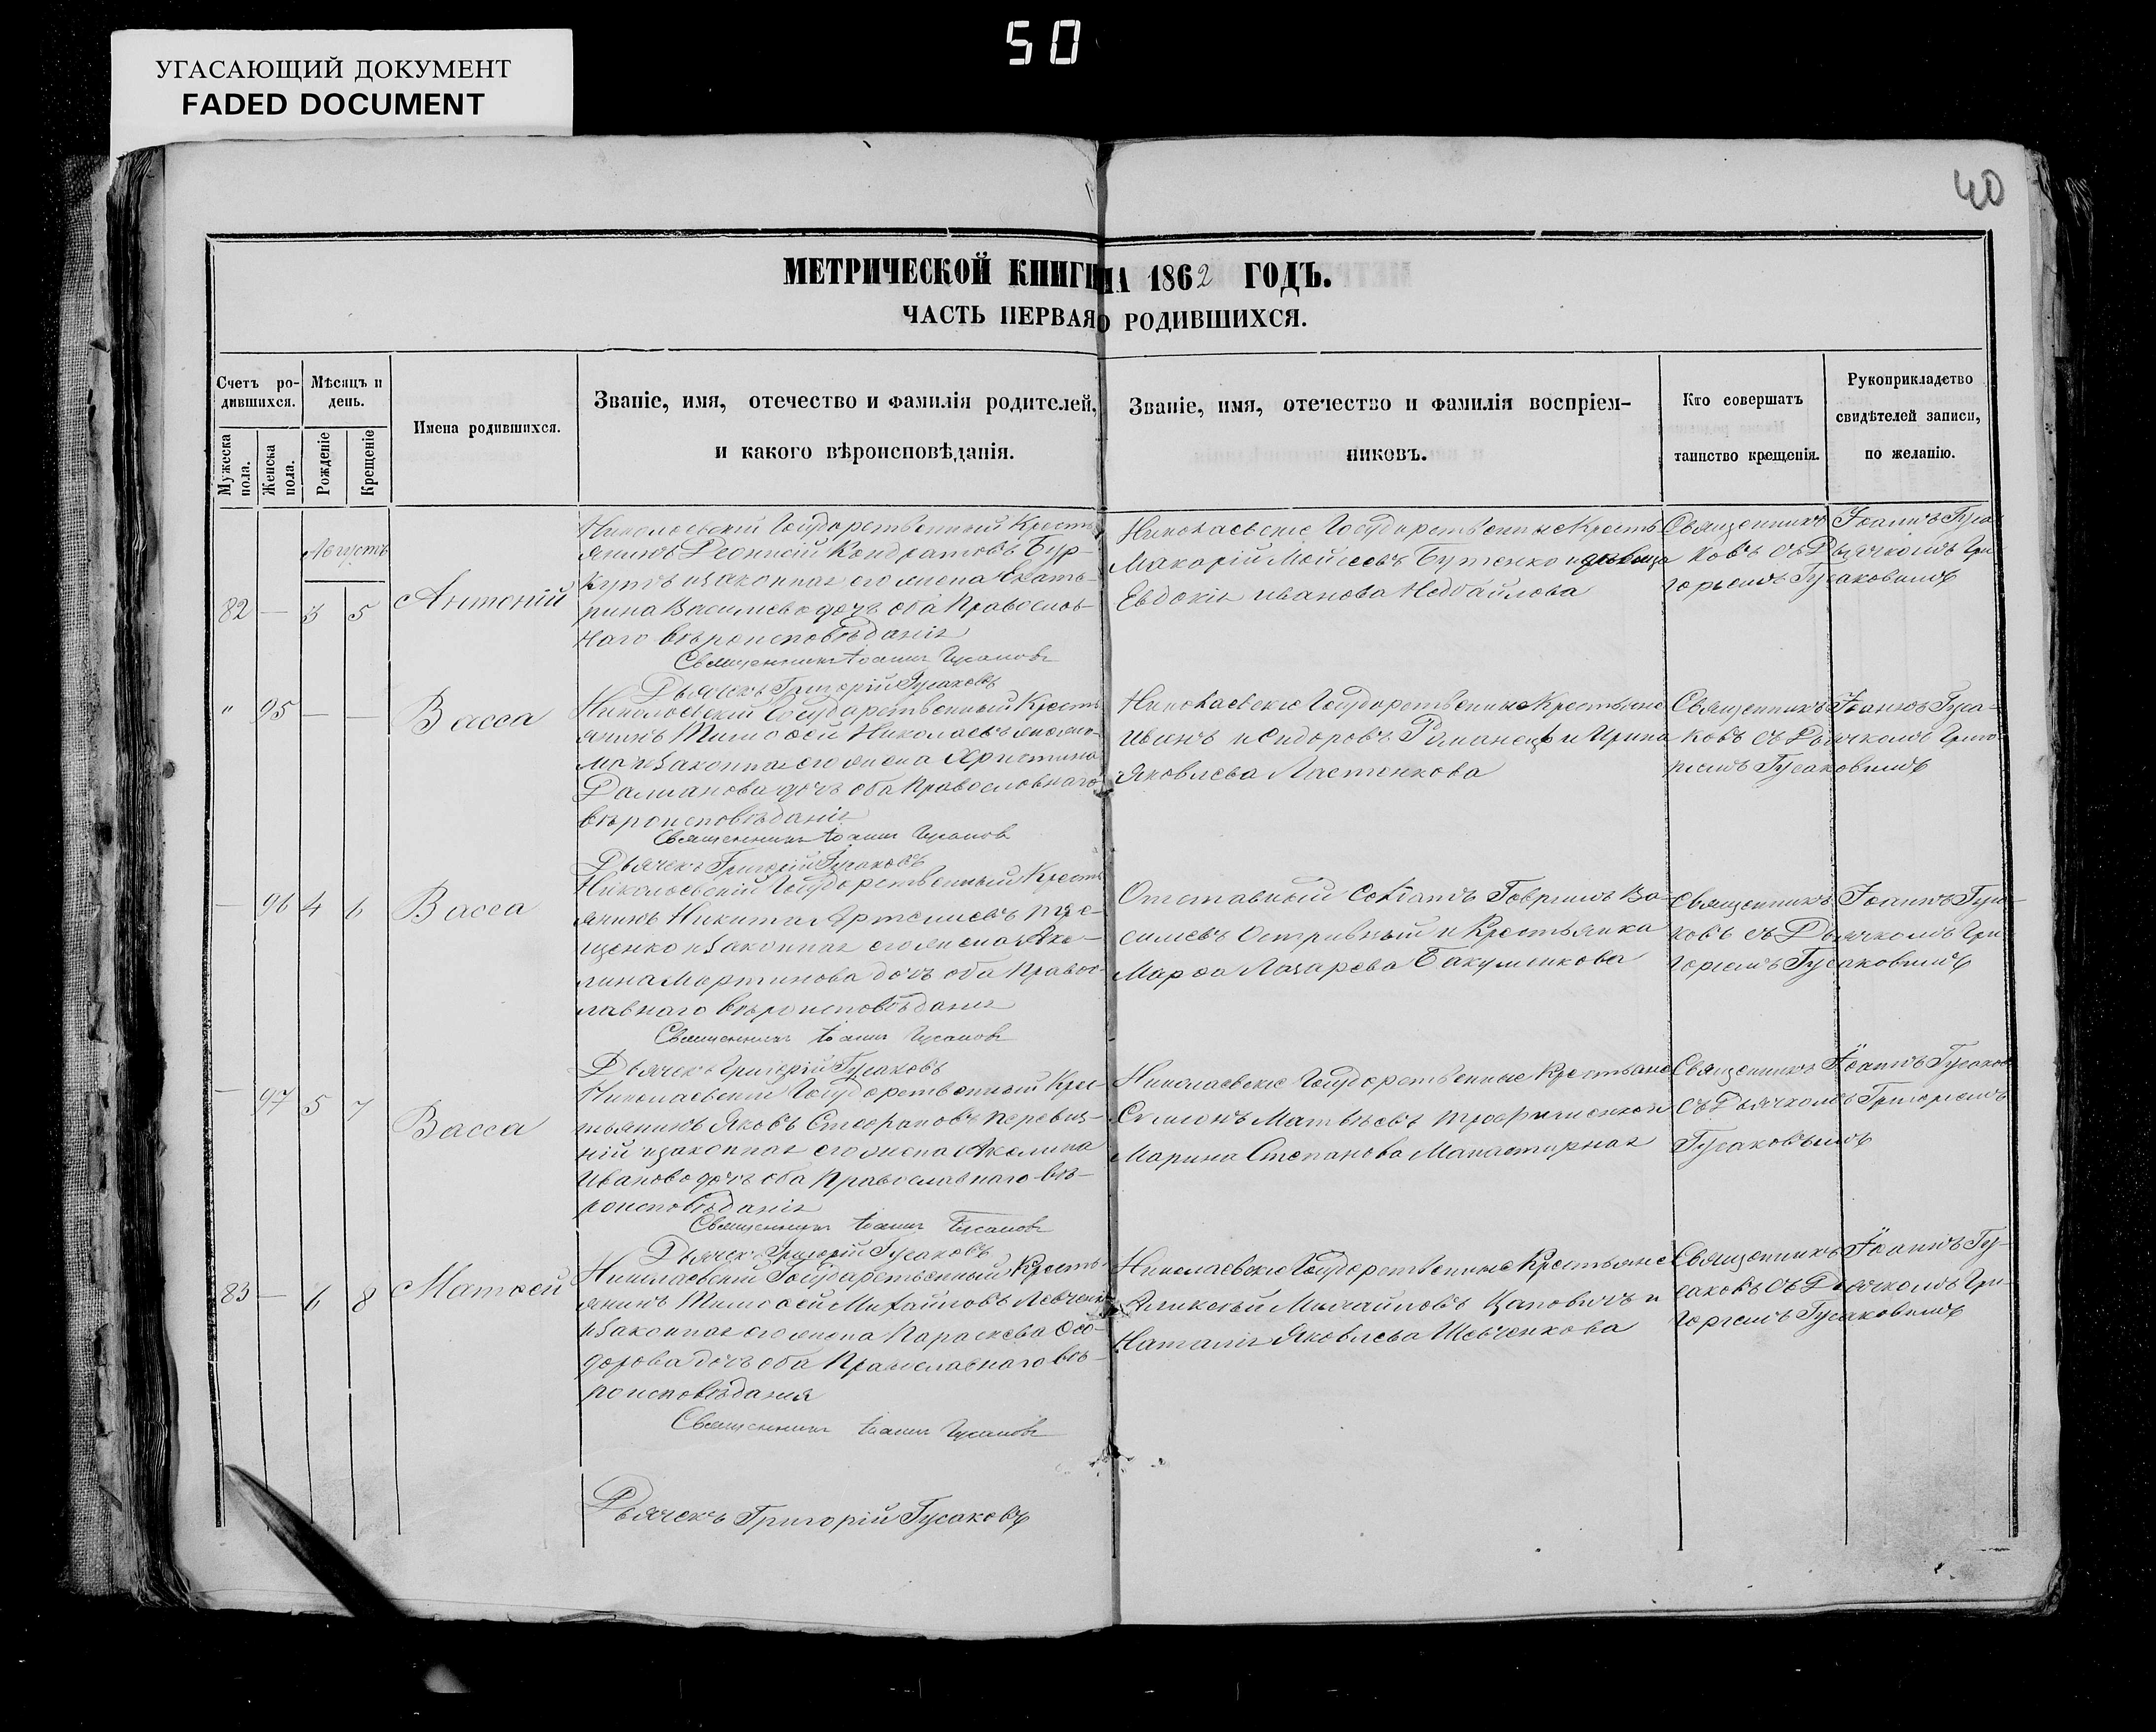 50
УГАСАЮЩИЙ ДОКУМЕНТ
FADED DOCUMENT
40
МЕТРИЧЕСКОЙ КНИГИ НА 1862 ГОДЪ.
ЧАСТЬ ПЕРВАЯ О РОДИВШИХСЯ.
Счетъ ро-
дившихся.
Мужеска
пола.
Женска
пола.
Мѣсяцъ и
день.
Рожденіе
Крещеніе
Имена родившихся.
Званіе, имя, отечество и фамилія родителей,
и какого вѣроисповѣданія.
Званіе, имя, отечество и фамилія воспріем-
никовъ.
Кто совершатъ
таинство крещенія.
Рукоприкладство
свидѣтелей записи,
по желанію.
Августъ
82 — 3 5
Антоній
Николаевскій Государственный Кресть
янинъ Кондратовъ Бур-
законная его жена Екате-
рина Васильева дочь оба Православ-
наго вѣроисповѣданія
Священникъ Іоаннъ Гусаковъ
Дьячекъ Григорій Гусаковъ
Николаевскіе Государственные Кресть
Макарій Моисеевъ Бутенко и дѣвица
Евдокія Иванова
Священникъ Іоаннъ Гуса
ковъ съ Дьячкомъ Гри
горіемъ Гусаковымъ
" 95 — —
Васса
Николаевскій Государственный Кресть
янинъ Тимоѳей Николаевъ
законная его жена Христина
дочь оба Православнаго
вѣроисповѣданія
Священникъ Іоаннъ Гусаковъ
Дьячекъ Григорій Гусаковъ
Николаевскіе Государственные Крестьяне
Иванъ Исидоровъ Романецъ и Ирина
Яковлева Ластенкова
Священникъ Іоаннъ Гуса-
ковъ съ Дьячкомъ Григо
ріемъ Гусаковымъ
— 96 4 6
Васса
Николаевскій Государственный Кресть
янинъ Никита Артемьевъ Тре-
щенко и законная его жена Аке-
лина Мартинова дочь оба Правос-
лавнаго вѣроисповѣданія
Священникъ Іоаннъ Гусаковъ
Дьячекъ Григорій Гусаковъ
Отставный Солдатъ Гавріилъ Ва-
сильевъ Остривный и Крестьянка
Марѳа Лазарева Бакуменкова
Священникъ Іоаннъ Гуса-
ковъ съ Дьячкомъ Гри
горіемъ Гусаковымъ
— 97 5 7
Васса
Николаевскій Государственный Крес-
тьянинъ Яковъ Стефановъ
законная его жена Акелина
Иванова дочь оба Православнаго вѣ-
роисповѣданія
Священникъ Іоаннъ Гусаковъ
Дьячекъ Григорій Гусаковъ
Николаевскіе Государственные Крестьяне
Симеонъ Матвѣевъ Трофименко и
Марина Степанова Манастирная
Священникъ Іоаннъ Гусаковъ
съ Дьячкомъ Григоріемъ
Гусаковымъ
83 — 6 8
Матѳей
Николаевскій Государственный Кресть
янинъ Тимоѳей Михайловъ Левченко
и законная его жена Параскева Ѳео-
дорова дочь оба Православнаго вѣ-
роисповѣданія
Священникъ Іоаннъ Гусаковъ
Дьячекъ Григорій Гусаковъ
Николаевскіе Государственные Крестьяне
Алексѣй Михайловъ и
Наталія Яковлева Шевченкова
Священникъ Іоаннъ Гу-
саковъ съ Дьячкомъ Гри-
горіемъ Гусаковымъ